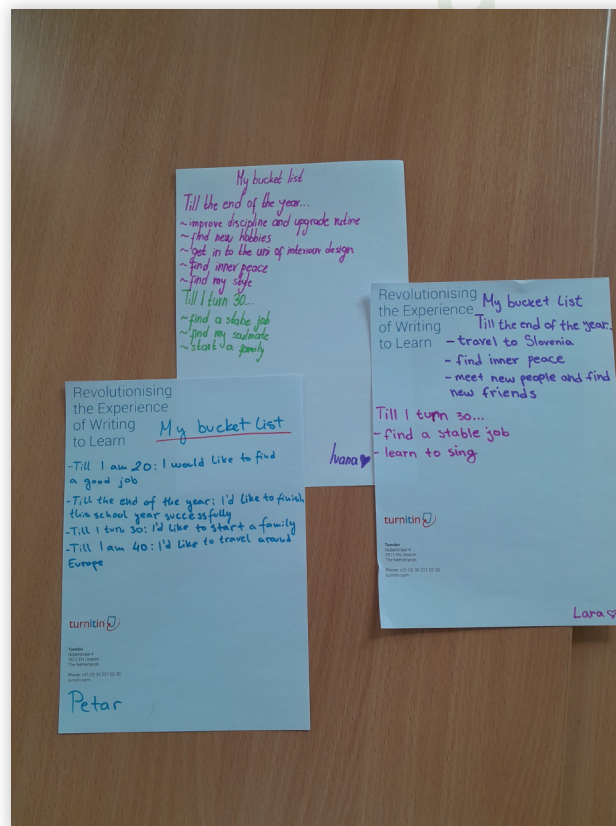 My bucket list
Till the end of the year...
~improve discipline and upgrade rutine
~find new hobbies
~get in to the uni of interiour design
~find inner peace
~find my style
Till I turn 30...
~find a stabe job
~find my soulmate
~start a family
Ivana
Revolutionising
the Experience
of Writing
to Learn
My bucket List
Till the end of the year...
- travel to Slovenia
- find inner peace
- meet new people and find
new friends
Till I turn 30...
- find a stable job
- learn to sing
turnitin
Turnitin
The Netherlands
turnitin.com
Lara
Revolutionising
the Experience
of Writing
to Learn
My bucket List
-Till I am 20: I would like to find
a good job
-Till the end of the year: I'd like to finish
this school year successfully
-Till I turn 30: I'd like to start a family
-Till I am 40: I'd like to travel around
Europe
turnitin
Turnitin
The Netherlands
turnitin.com
Petar